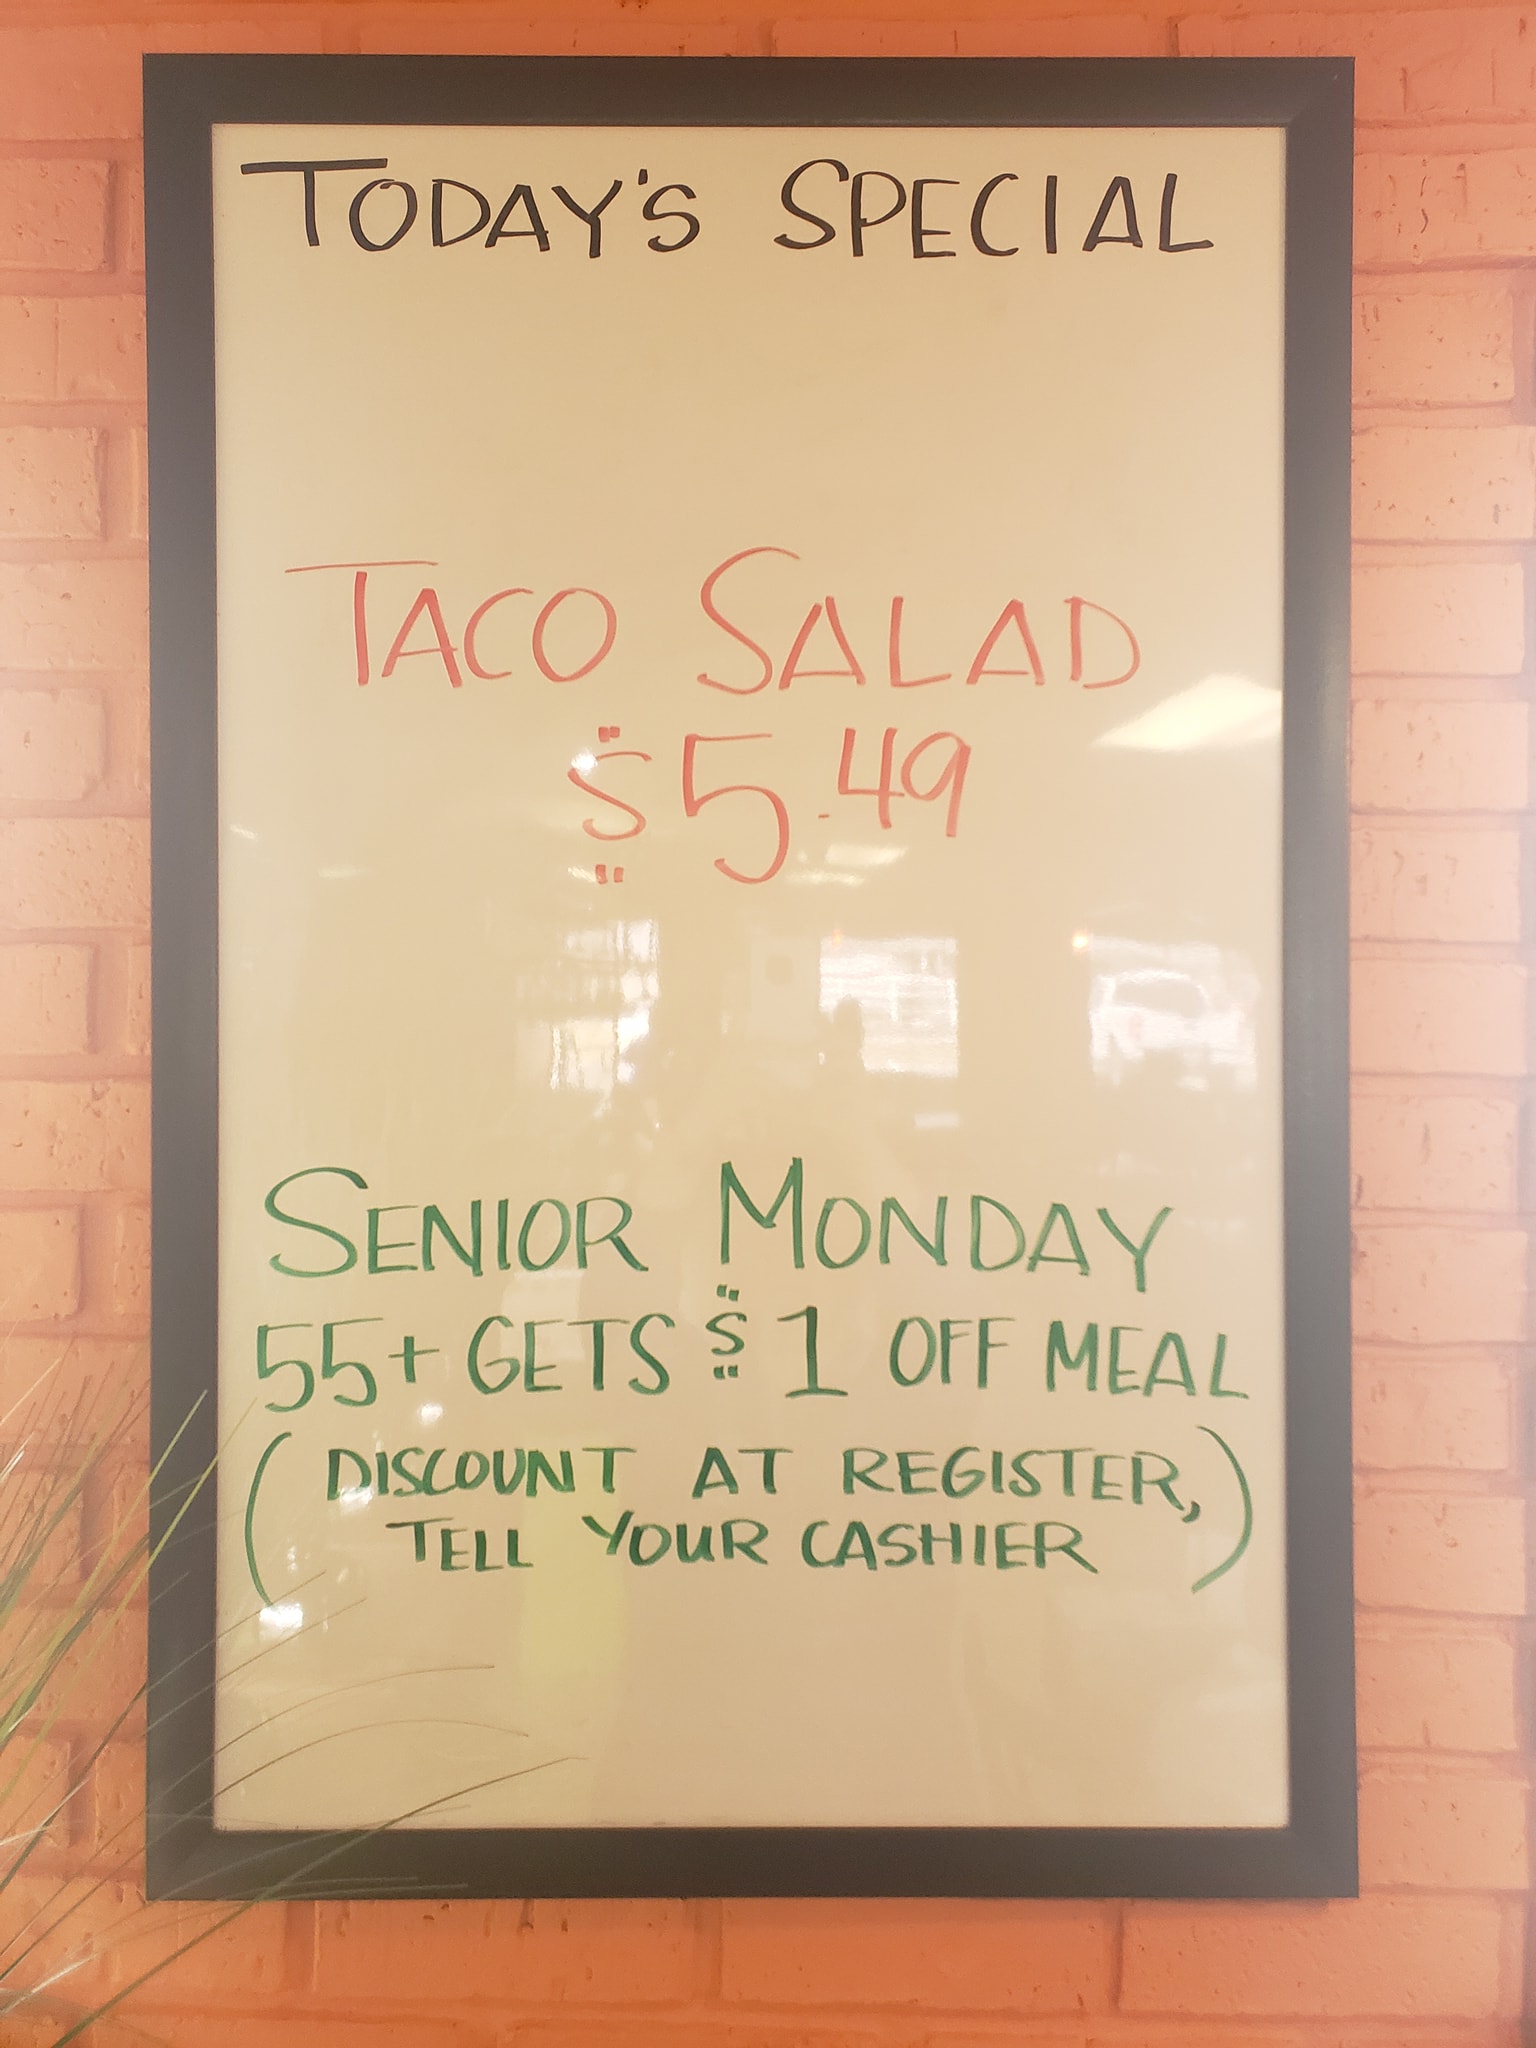 TODAY'S SPECIAL
TACO SALAD
$5.49
SENIOR MONDAY
55+ GETS $1 OFF MEAL
(DISCOUNT AT REGISTER,
TELL YOUR CASHIER)